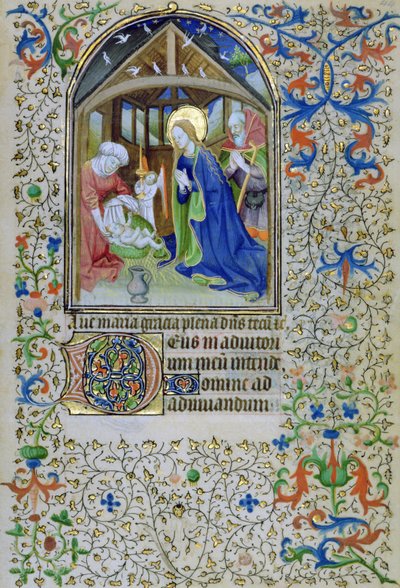 Aue maria gracia plena dns tecu
Deus in adiutori
um meum intende
Domine ad
adiuuandum